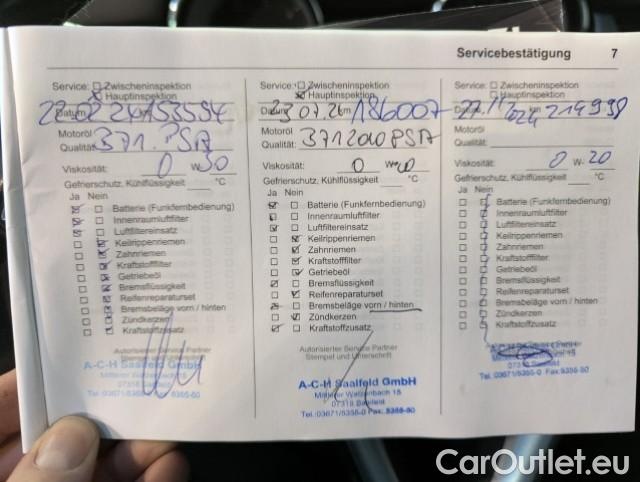 Servicebestätigung 7
Service: Zwischeninspektion
Hauptinspektion
Datum
Motoröl
Qualität: 371. PSA
Viskosität: 0 W- 30
Gefrierschutz, Kühlflüssigkeit °C
Ja Nein
Batterie (Funkfernbedienung)
Innenraumluftfilter
Luftfiltereinsatz
Keilrippenriemen
Zahnriemen
Kraftstofffilter
Getriebeöl
Bremsflüssigkeit
Reifenreparaturset
Bremsbeläge vorn / hinten
Zündkerzen
Kraftstoffzusatz
Autorisierter Service Partner
Stempel und Unterschrift
A-C-H Saalfeld GmbH
Mittlerer Watzenbach 15
07318 Saalfeld
Tel. 03671/5355-0 Fax: 5355-50
Service: Zwischeninspektion
Hauptinspektion
Datum 186007
Motoröl
Qualität: 371 2010 PSA
Viskosität: 0 W-
Gefrierschutz, Kühlflüssigkeit °C
Ja Nein
Batterie (Funkfernbedienung)
Innenraumluftfilter
Luftfiltereinsatz
Keilrippenriemen
Zahnriemen
Kraftstofffilter
Getriebeöl
Bremsflüssigkeit
Reifenreparaturset
Bremsbeläge vorn / hinten
Zündkerzen
Kraftstoffzusatz
Autorisierter Service Partner
Stempel und Unterschrift
A-C-H Saalfeld GmbH
Mittlerer Watzenbach 15
07318 Saalfeld
Tel.:03671/5355-0 Fax: 5355-50
Service: Zwischeninspektion
Hauptinspektion
km
Motoröl
Qualität:
Viskosität: 0 W- 20
Gefrierschutz, Kühlflüssigkeit °C
Ja Nein
Batterie (Funkfernbedienung)
Innenraumluftfilter
Luftfiltereinsatz
Keilrippenriemen
Zahnriemen
Kraftstofffilter
Getriebeöl
Bremsflüssigkeit
Reifenreparaturset
Bremsbeläge vorn / hinten
Zündkerzen
Kraftstoffzusatz
Tel. 03671/5355-0 Fax: 5355-50
CarOutlet.eu